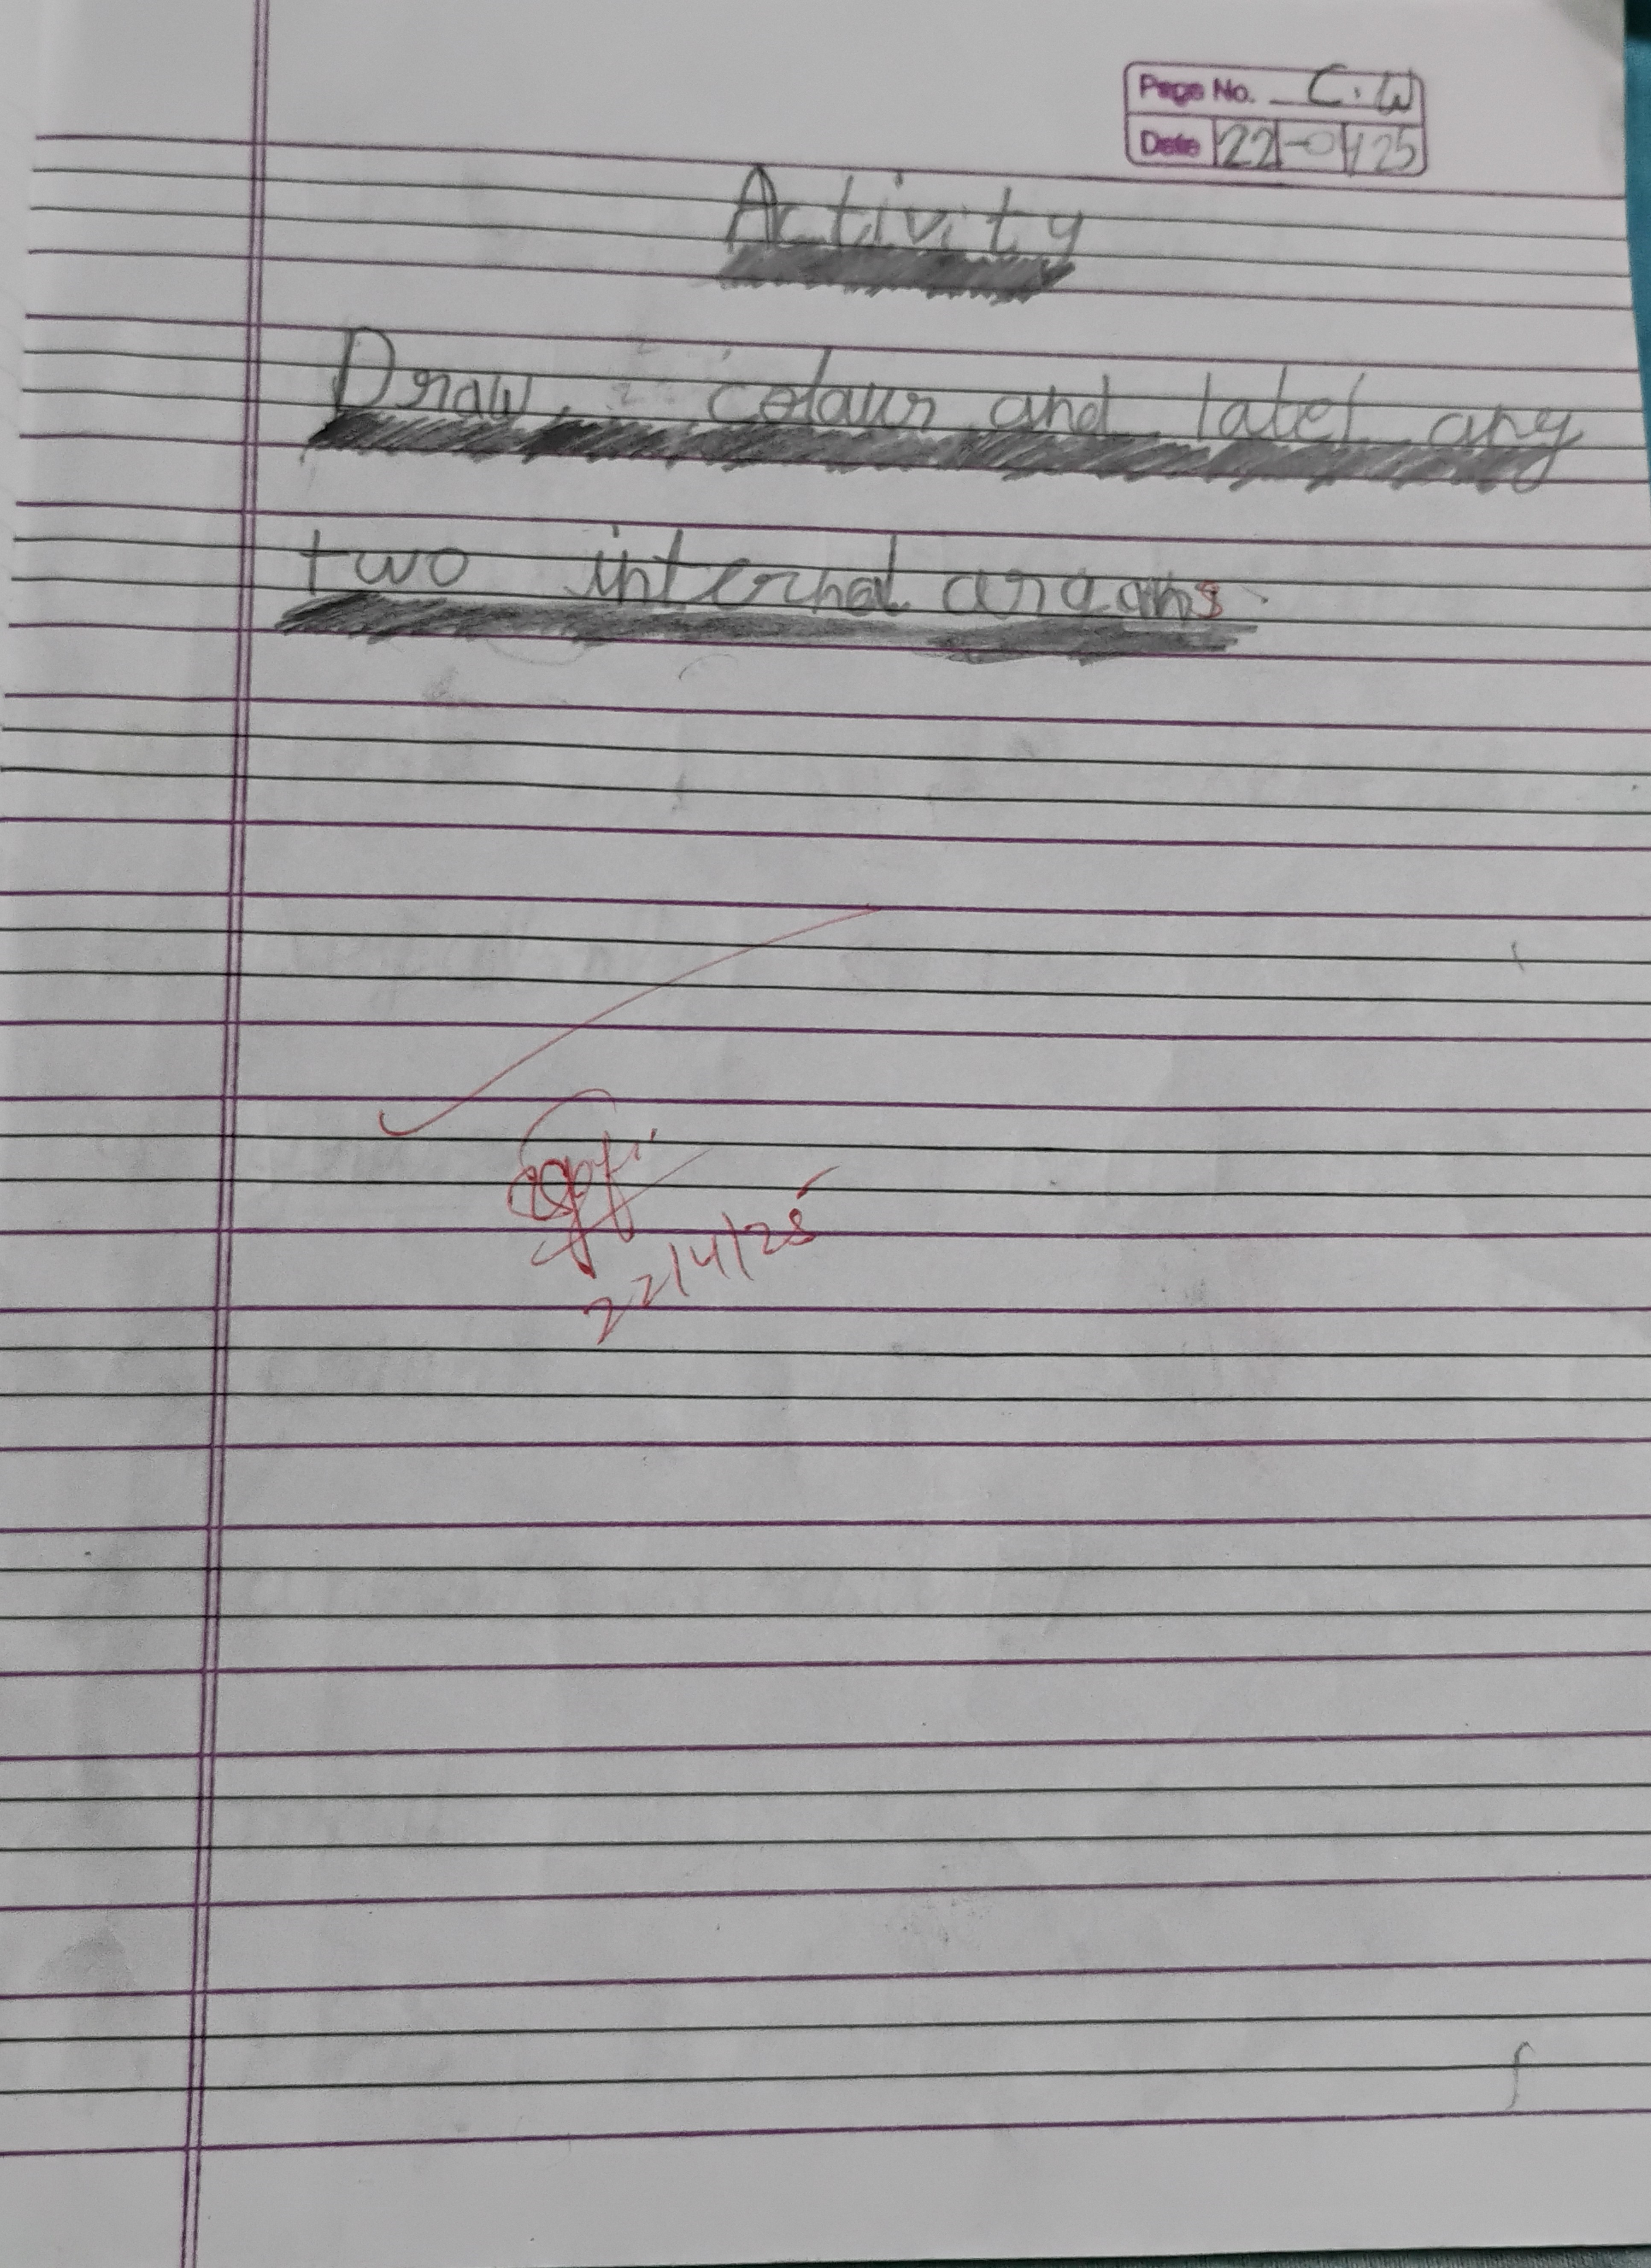 Page No. C.W
Date 22-04-25
Activity
Draw, colour and label any
two internal organs.
22/4/25